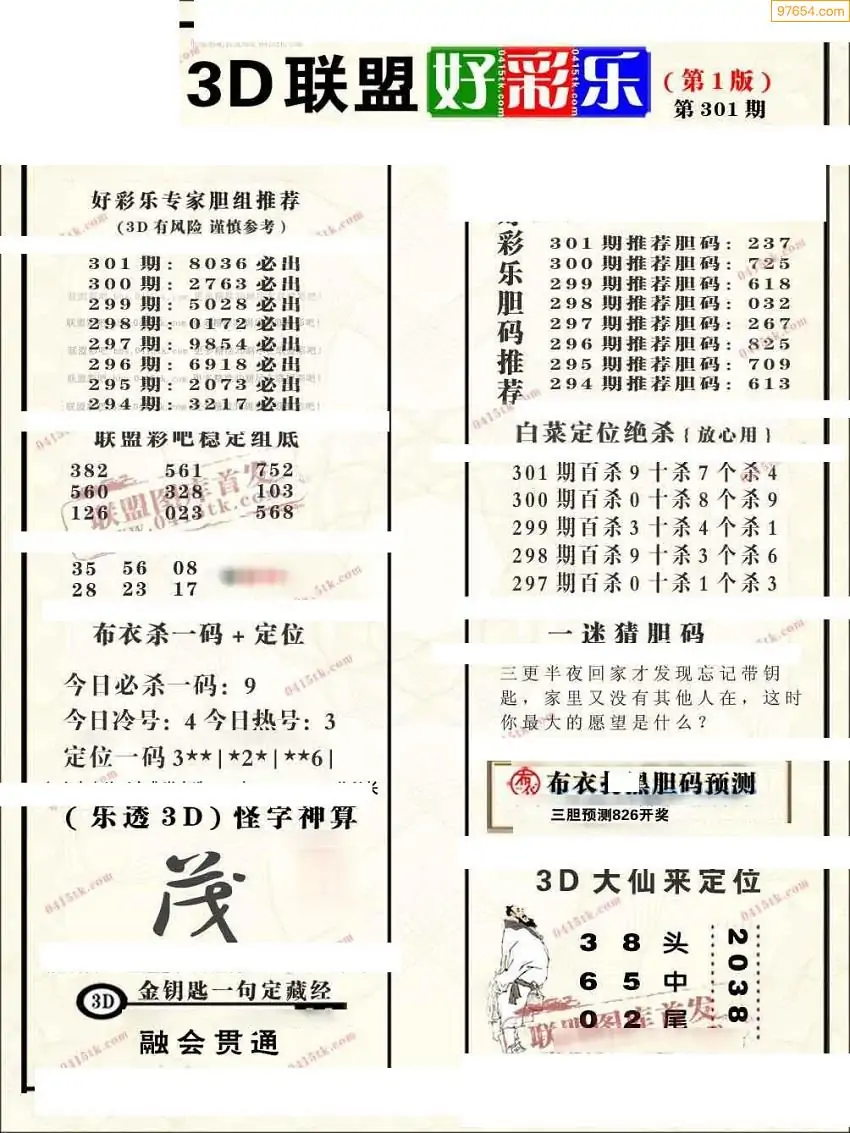 97654.com
3D联盟好彩乐(第1版)
第301期
好彩乐专家胆组推荐
(3D有风险 谨慎参考)
301期:8036必出
300期:2763必出
299期:5028必出
298期:0172必出
297期:9854必出
296期:6918必出
295期:2073必出
294期:3217必出
联盟彩吧稳定组底
382 561 752
560 328 103
126 023 568
35 56 08
28 23 17
布衣杀一码+定位
今日必杀一码:9
今日冷号:4 今日热号:3
定位一码 3**|*2*|**6|
(乐透3D)怪字神算
茂
3D 金钥匙一句定藏经
融会贯通
好彩乐胆码推荐
301期推荐胆码:237
300期推荐胆码:725
299期推荐胆码:618
298期推荐胆码:032
297期推荐胆码:267
296期推荐胆码:825
295期推荐胆码:709
294期推荐胆码:613
白菜定位绝杀{放心用}
301期百杀9十杀7个杀4
300期百杀0十杀8个杀9
299期百杀3十杀4个杀1
298期百杀9十杀3个杀6
297期百杀0十杀1个杀3
一迷猜胆码
三更半夜回家才发现忘记带钥
匙,家里又没有其他人在,这时
你最大的愿望是什么?
布衣 胆码预测
三胆预测826开奖
3D大仙来定位
3 8 头
6 5 中
0 2 尾
2038
联盟图库首发
www.0415tk.com
联盟图库首发
0415tk.com